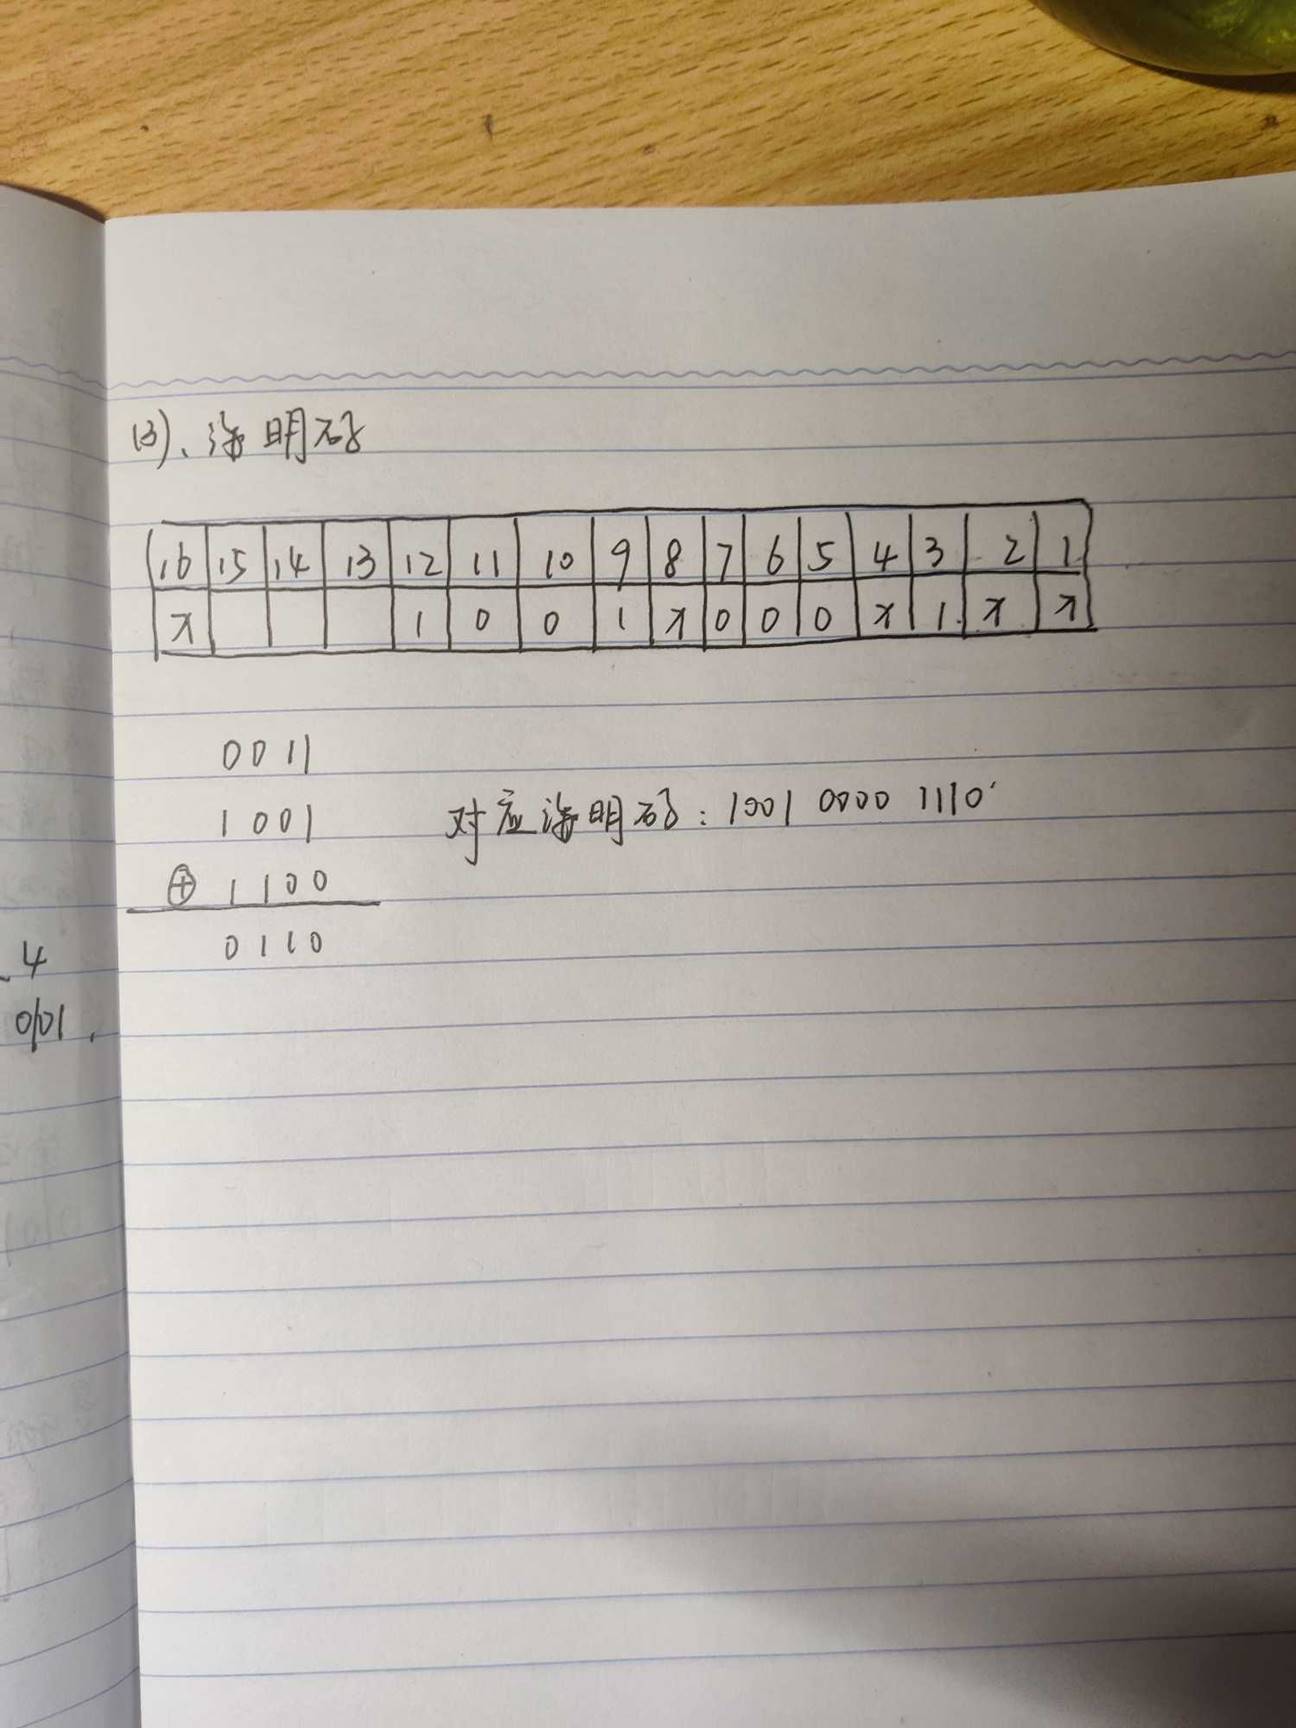 (3)、海明码
16 15 14 13 12 11 10 9 8 7 6 5 4 3 2 1
x 1 0 0 1 x 0 0 0 x 1 x x
0011
1001 对应海明码:1001 0000 1110
⊕ 1100
0110
4
0101.